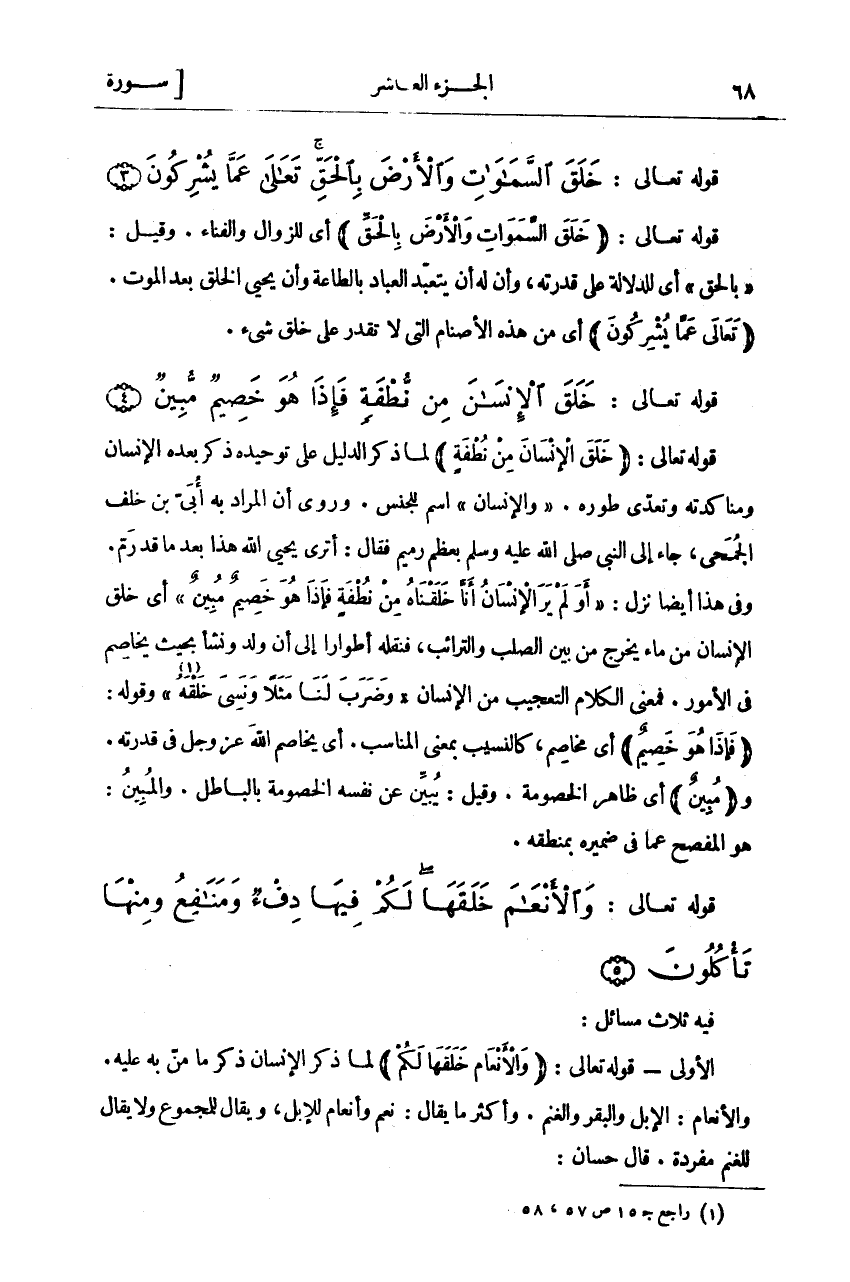 ٦٨ الجـزء العـاشر [ ســورة
قوله تعـالى : خَلَقَ ٱلسَّمَـٰوَٰتِ وَٱلْأَرْضَ بِٱلْحَقِّۚ تَعَـٰلَىٰ عَمَّا يُشْرِكُونَ ٣
قوله تعـالى : ﴿ خَلَقَ السَّمَوَاتِ وَالْأَرْضَ بِالْحَقِّ ﴾ أى للزوال والفناء . وقيـل :
« بالحق » أى للدلالة على قدرته، وأن له أن يتعبّد العباد بالطاعة وأن يحيى الخلق بعد الموت .
﴿ تَعَالَى عَمَّا يُشْرِكُونَ ﴾ أى من هذه الأصنام التى لا تقدر على خلق شىء .
قوله تعـالى : خَلَقَ ٱلْإِنسَـٰنَ مِن نُّطْفَةٍ فَإِذَا هُوَ خَصِيمٌ مُّبِينٌ ٤
قوله تعالى : ﴿ خَلَقَ الْإِنْسَانَ مِنْ نُطْفَةٍ ﴾ لمـا ذكر الدليل على توحيده ذكر بعده الإنسان
ومناكدته وتعدّى طوره . « والإنسان » اسم للجنس . وروى أن المراد به أُبَىّ بن خلف
الجُمَحى، جاء إلى النبى صلى الله عليه وسلم بعظم رميم فقال : أترى يحيى الله هذا بعد ما قد رَمّ.
وفى هذا أيضا نزل : « أَوَ لَمْ يَرَ الْإِنْسَانُ أَنَّا خَلَقْنَاهُ مِنْ نُطْفَةٍ فَإِذَا هُوَ خَصِيمٌ مُبِينٌ » أى خلق
الإنسان من ماء يخرج من بين الصلب والترائب، فنقله أطوارا إلى أن ولد ونشأ بحيث يخاصم
فى الأمور . فمعنى الكلام التعجيب من الإنسان « وَضَرَبَ لَنَـا مَثَلًا وَنَسِىَ خَلْقَهُ (١) » وقوله :
﴿ فَإِذَا هُوَ خَصِيمٌ ﴾ أى مخاصم، كالنسيب بمعنى المناسب. أى يخاصم اللهَ عز وجل فى قدرته .
و﴿ مُبِينٌ ﴾ أى ظاهر الخصومة . وقيل : يُبيِّن عن نفسه الخصومة بالبـاطل . والمُبِينُ :
هو المفصح عما فى ضميره بمنطقه .
قوله تعـالى : وَٱلْأَنْعَـٰمَ خَلَقَهَـاۖ لَكُمْ فِيهَـا دِفْءٌ وَمَنَـٰفِعُ وَمِنْهَـا
تَأْكُلُونَ ٥
فيه ثلاث مسائل :
الأولى — قوله تعالى : ﴿ وَالْأَنْعَامَ خَلَقَهَا لَكُمْ ﴾ لمـا ذكر الإنسان ذكر ما منّ به عليه.
والأنعام : الإبل والبقر والغنم . وأكثر ما يقال : نعم وأنعام للإبل، ويقال للجموع ولا يقال
للغنم مفردة . قال حسان :
(١) راجع جـ ١٥ ص ٥٧ ، ٥٨